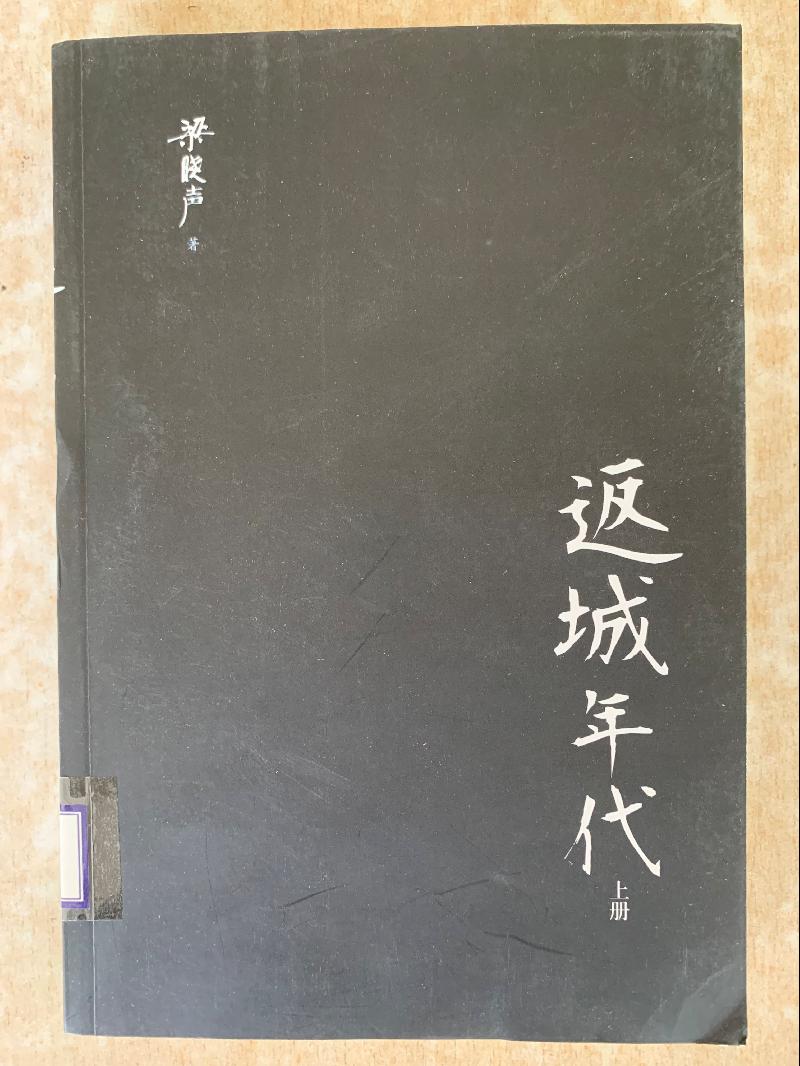 梁晓声 著
返城年代
上册